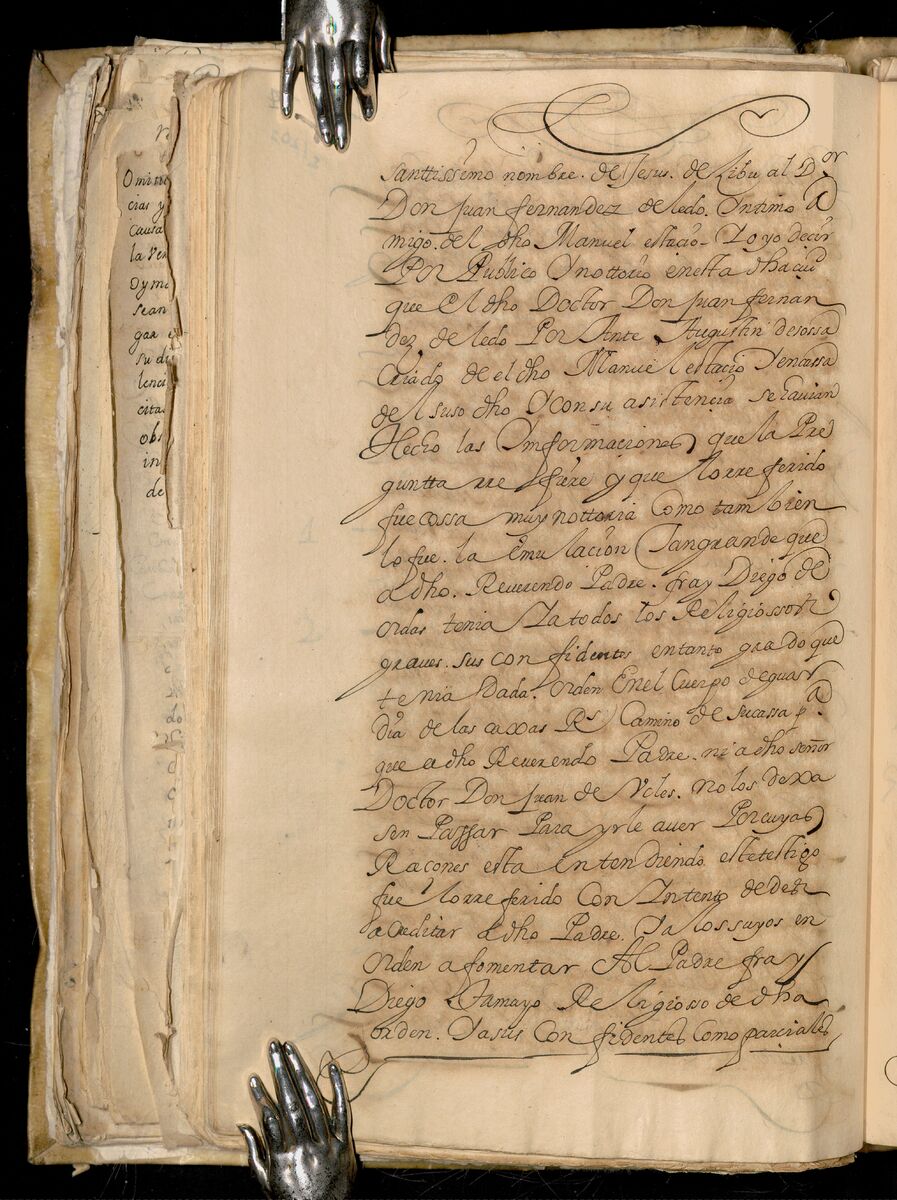 santtissimo nombre. de Jesus. de Libu al Dor
Don Juan fernandez de ledo. Yntimo A
migo. del dho Manuel estacio - Yoyo decir
Por Publico Ynottorio enesta dha ciud
que El dho Doctor Don Juan fernan
dez de ledo Por Ante Augustin desossa
Criado de el dho Manuel estacio Yencassa
del suso dho Yconsu asistencia se havian
Hecho las Ymformaciones que la Pre
guntta rre fiere y que lo rre ferido
fue cossa muy nottoria Como tambien
lo fue. la Emulacion Tangrande que
a dho. Reverendo Padre. fray Diego de
ordas tenia Ya todos los Religiossos
graves. sus confidentes entanto grado que
tenia dada. orden Enel Cuerpo deguar
dia de las caxas Rs Camino de sucassa pa
que a dho Reverendo Padre. ni a dho señor
Doctor Don Juan de Vcles. no los dexa
sen Passar Para yrle aver Porcuyas
Raçones esta entendiendo estetestigo
fue lo rre ferido Con Yntento de des
acreditar a dho Padre. Ya los suyos en
orden a fomentar Al Padre fray
Diego Tamayo Religiosso de dha
orden. Yasus Confidentes Como parciales
Omitie
cias y
causa
la Ven
Dymi
sean
gar e
su di
lenci
citas
obs
in
de